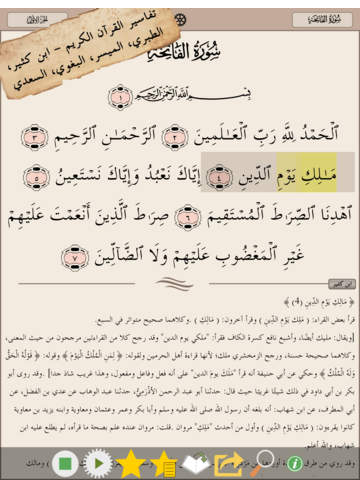 الجزء الأول
سُورَةُ الفَاتِحَةِ
تفاسير القرآن الكريم - ابن كثير،
الطبري، الميسر، البغوي، السعدي
سُورَةُ الفَاتِحَةِ
بِسْمِ اللَّهِ الرَّحْمَٰنِ الرَّحِيمِ ١
ٱلْحَمْدُ لِلَّهِ رَبِّ ٱلْعَٰلَمِينَ ٢ ٱلرَّحْمَٰنِ ٱلرَّحِيمِ ٣
مَٰلِكِ يَوْمِ ٱلدِّينِ ٤ إِيَّاكَ نَعْبُدُ وَإِيَّاكَ نَسْتَعِينُ ٥
ٱهْدِنَا ٱلصِّرَٰطَ ٱلْمُسْتَقِيمَ ٦ صِرَٰطَ ٱلَّذِينَ أَنْعَمْتَ عَلَيْهِمْ
غَيْرِ ٱلْمَغْضُوبِ عَلَيْهِمْ وَلَا ٱلضَّآلِّينَ ٧
ابن كثير
﴿ مَالِكِ يَوْمِ الدِّينِ (4) ﴾
قرأ بعض القراء: ( مَلِك يَوْمِ الدِّينِ ) وقرأ آخرون: ( مَالِكِ ) .وكلاهما صحيح متواتر في السبع.
[ويقال: مليك أيضًا، وأشبع نافع كسرة الكاف فقرأ: "ملكي يوم الدين" وقد رجح كلا من القراءتين مرجحون من حيث المعنى،
وكلاهما صحيحة حسنة، ورجح الزمخشري ملك؛ لأنها قراءة أهل الحرمين ولقوله: ﴿ لِمَنِ الْمُلْكُ الْيَوْمَ ﴾ وقوله: ﴿ قَوْلُهُ الْحَقُّ
وَلَهُ الْمُلْكُ ﴾ وحكي عن أبي حنيفة أنه قرأ "مَلَكَ يومَ الدين" على أنه فعل وفاعل ومفعول، وهذا غريب شاذ جدا] .وقد روى أبو
بكر بن أبي داود في ذلك شيئا غريبًا حيث قال: حدثنا أبو عبد الرحمن الأذْرَمِيُّ، حدثنا عبد الوهاب عن عدي بن الفضل، عن
أبي المطرف، عن ابن شهاب: أنه بلغه أن رسول الله صلى الله عليه وسلم وأبا بكر وعمر وعثمان ومعاوية وابنه يزيد بن معاوية
كانوا يقرءون: ( مَالِكِ يَوْمِ الدِّينِ ) وأول من أحدث "مَلِكِ" مروان .قلت: مروان عنده علم بصحة ما قرأه، لم يطلع عليه ابن
شهاب، والله أعلم.
وقد روي من طرق
ومالك